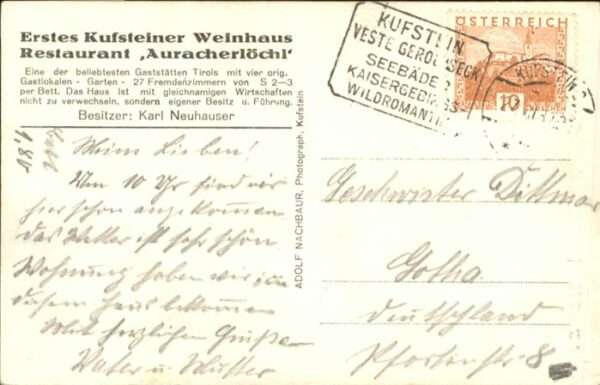 Erstes Kufsteiner Weinhaus
Restaurant ‚Auracherlöchl‘
Eine der beliebtesten Gaststätten Tirols mit vier orig.
Gastlokalen - Garten - 27 Fremdenzimmern von S 2—3
per Bett. Das Haus ist mit gleichnamigen Wirtschaften
nicht zu verwechseln, sondern eigener Besitz u. Führung.
Besitzer: Karl Neuhauser
KUFSTEIN
VESTE GEROLDSECK
SEEBÄDER
KAISERGEBIRGS
WILDROMANTI
ÖSTERREICH
10
KUFSTEIN
ADOLF NACHBAUR, Photograph, Kufstein
Meine Lieben!
Um 10 Uhr sind wir
hier schon angekommen
das Wetter ist sehr schön
Wohnung haben wir in
diesem Haus bekommen
Mit herzlichen Grüßen
Vater u. Mutter
Geschwister Dittmar
Gotha
Deutschland
Pfortenstr. 8